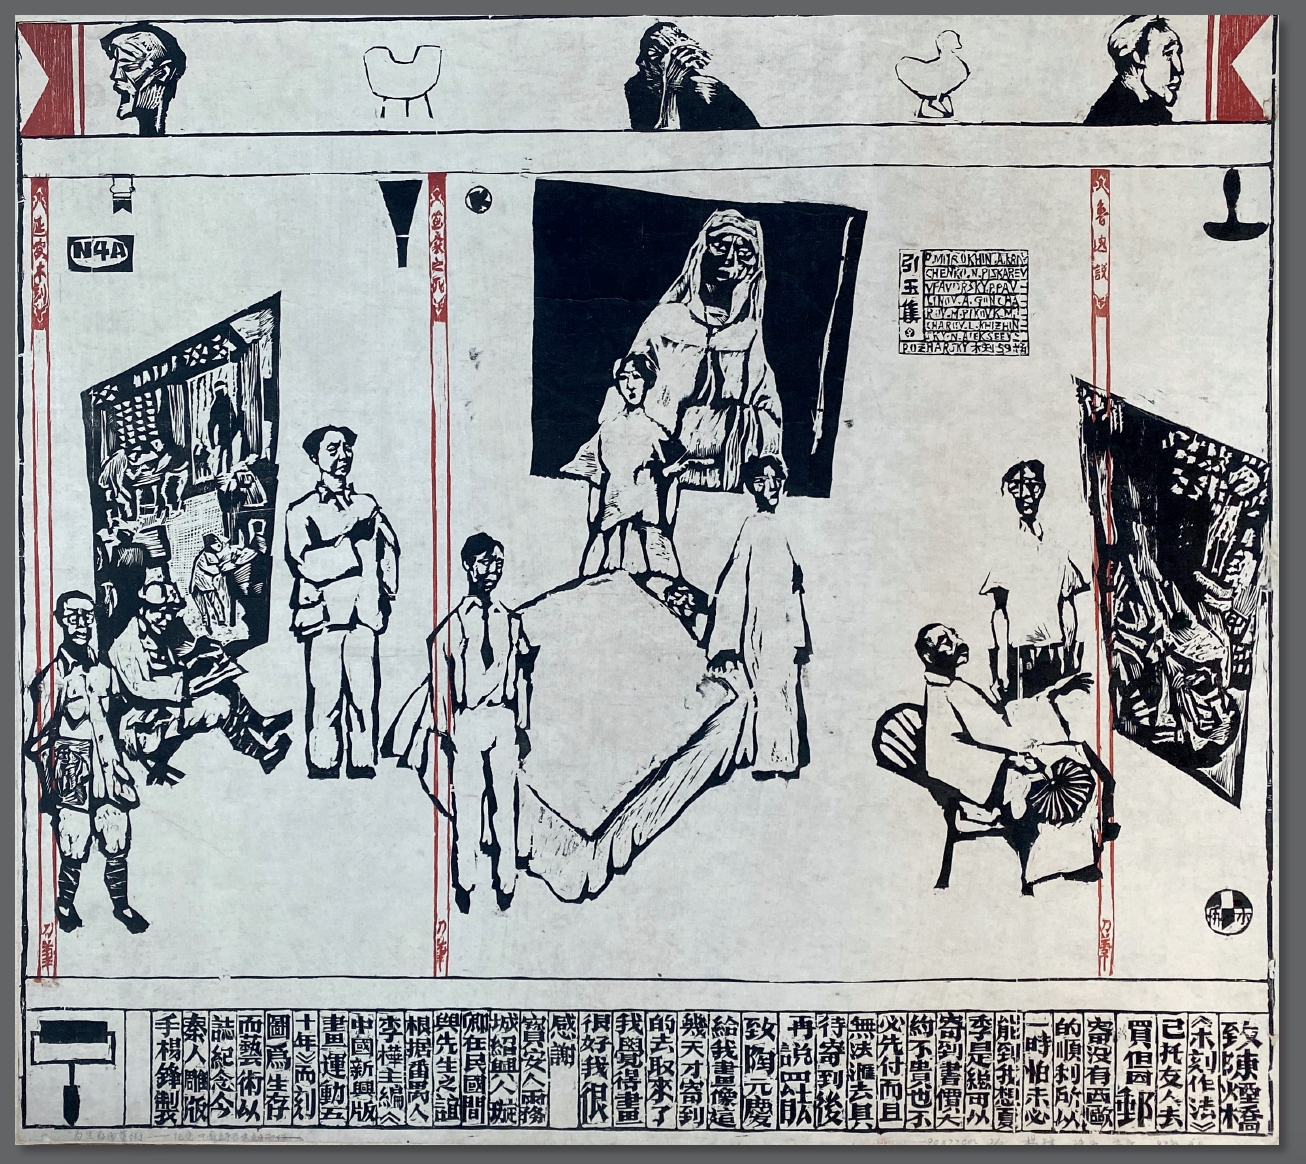 魯迅說
刀筆
引玉集
P.MITROKHIN.A.KRAV-
CHENKO.N.PISKAREV
V.FAVORSKY.P.PAV-
LINOV.A.GONCHA-
ROV.M.PIKOV.
CHARIEV.L.KHIZHIN-
SKY.N.ALEKSEEV
POZHARSKY木刻59幅
木
刀筆
延安木刻
刀筆
N4A
致陳煙橋
《木刻作法》
已托友人去
買但因郵
寄沒有西歐
的順利所以
一時怕未必
能到我想夏
季是總可以
寄到書價大
約不貴也不
必先付而且
無法滙去具
待寄到後
再説
致陶元慶
給我畫像這
幾天才寄到
的去取來了
我覺得畫
很好我很
感謝
寶安人雨務
城紹興人璇
卿在民國間
與先生之誼
根据番禺人
李樺主編《
中國新興版
畫運動五
十年》而刻
圖爲生存
而藝術以
誌紀念今
秦人雕版
手楊鋒製